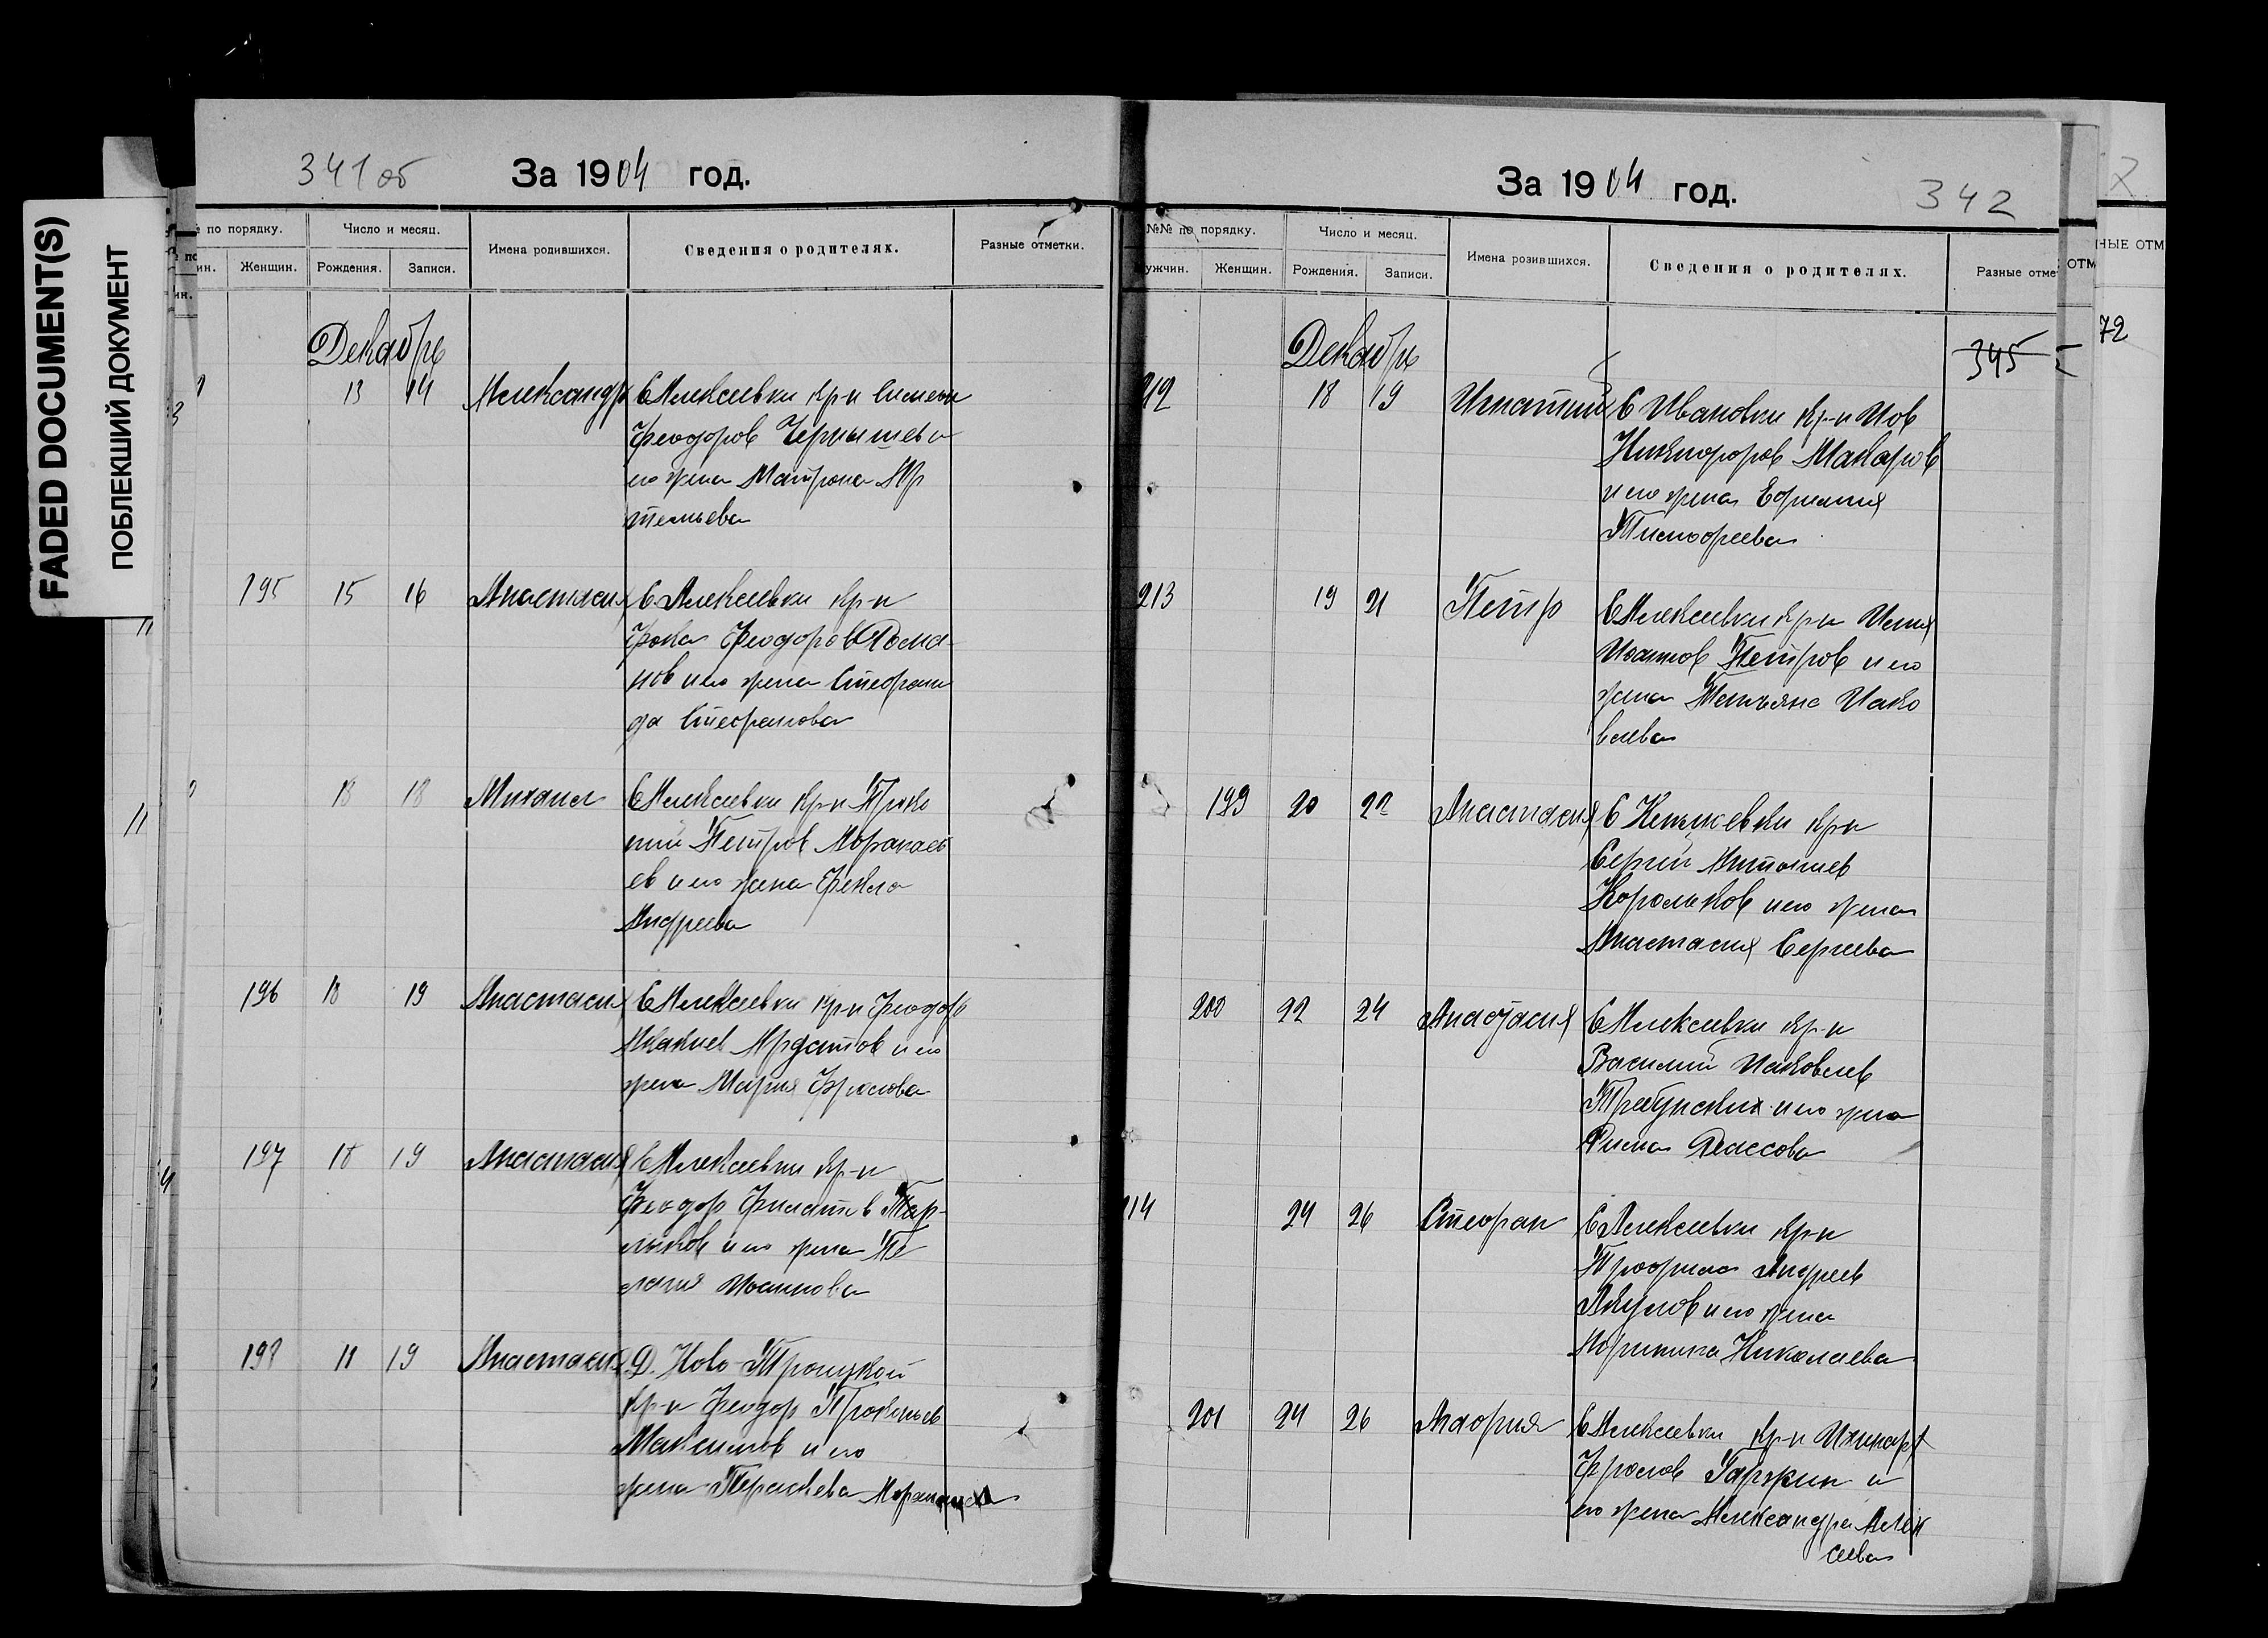 FADED DOCUMENT(S)
ПОБЛЕКШИЙ ДОКУМЕНТ
341об
За 1904 год.
№ по порядку.
Число и месяц.
Имена родившихся.
Сведения о родителях.
Разные отметки.
Женщин.
Рождения.
Записи.
Декабрь
13 14 Александр С Алексеевки кр-н Симеон
Феодоров Чернышев и
его жена Матрона Ар
темьева
195 15 16 Анастасия С Алексеевки кр-н
Фока Феодоров Рома-
нов и его жена Стефани
да Стефанова
18 18 Михаил С Алексеевки кр-н Проко
пий Петров Афанась
ев и его жена Фекла
Андреева
196 18 19 Анастасия С Алексеевки кр-н Феодор
Ардатов и его
жена Мария Фролова
197 18 19 Анастасия С Алексеевки кр-н
Феодор Филатов
и его жена Пе
лагия Иоаннова
198 18 19 Анастасия Д. Ново-Троицкой
кр-н Феодор Прокопьев
Максимов и его
жена
За 1904 год.
342
№№ по порядку.
Число и месяц.
Имена розившихся.
Сведения о родителях.
Разные отме
Женщин.
Рождения.
Записи.
НЫЕ ОТМ
ОТМ
72
Декабрь
345
212 18 19 Игнатий С Ивановки кр-н Иов
Никифоров Макаров
и его жена Евфимия
Тимофеева
213 19 21 Петр С Алексеевки кр-н
Иоаннов Петров и его
жена Татьяна Иако
влева
199 20 22 Анастасия С кр-н
Сергий
Корольков и его жена
Анастасия Сергиева
200 22 24 Анастасия С Алексеевки кр-н
Василий Иаковлев
Требунских и его жена
Власова
214 24 26 Стефан С Алексеевки кр-н
Трофим Андреев
Акулов и его жена
Николаева
201 24 26 Мария С Алексеевки кр-н
Фролов Гаржин и
его жена Александра Алек
сеева